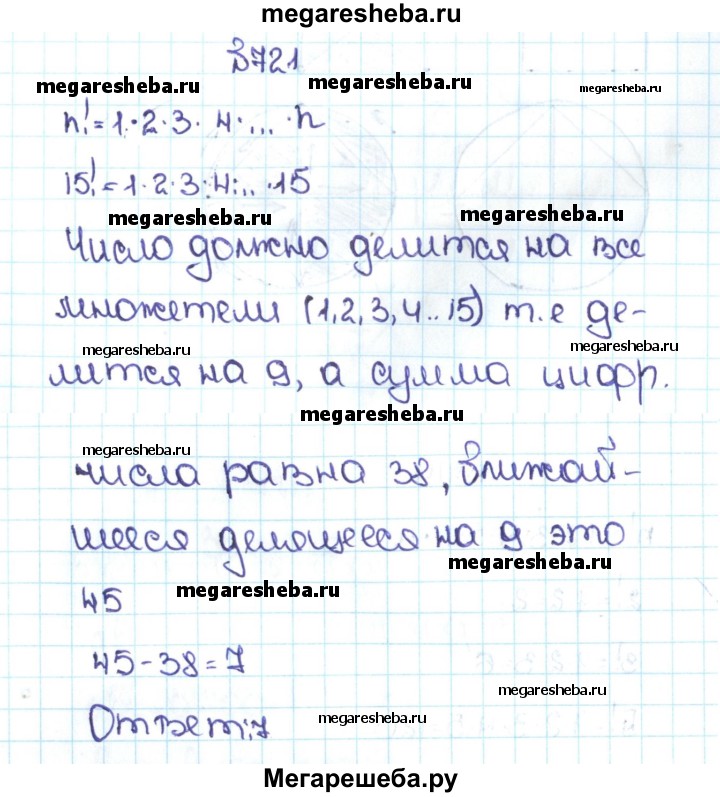 megaresheba.ru
З721
megaresheba.ru megaresheba.ru megaresheba.ru
n!=1·2·3·4·...·n
15!=1·2·3·4·...·15
megaresheba.ru megaresheba.ru
Число должно делится на все
множетели (1,2,3,4..15) т.е де-
megaresheba.ru megaresheba.ru
лится на 9, а сумма цифр.
megaresheba.ru
megaresheba.ru
числа равна 38, ближай-
шееся делющееся на 9 это
megaresheba.ru
45 megaresheba.ru
45-38=7
megaresheba.ru
Ответ:7 megaresheba.ru
Мегарешеба.ру